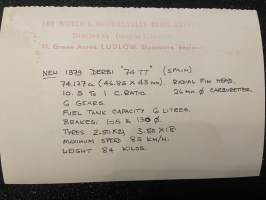 11, Green Acres, LUDLOW, Shropshire
NEW 1979 DERBI "74 TT" (SPAIN)
74,127cc (46.86 x 43mm). RADIAL FIN HEAD.
10.5 TO 1 C.RATIO. 26mm Ø CARBURETTER.
6 GEARS.
FUEL TANK CAPACITY 6 LITRES.
BRAKES: 105 & 130 Ø.
TYRES 2.50 x 21, 3.50 x 18.
MAXIMUM SPEED 85 KM/H.
WEIGHT 84 KILOS.